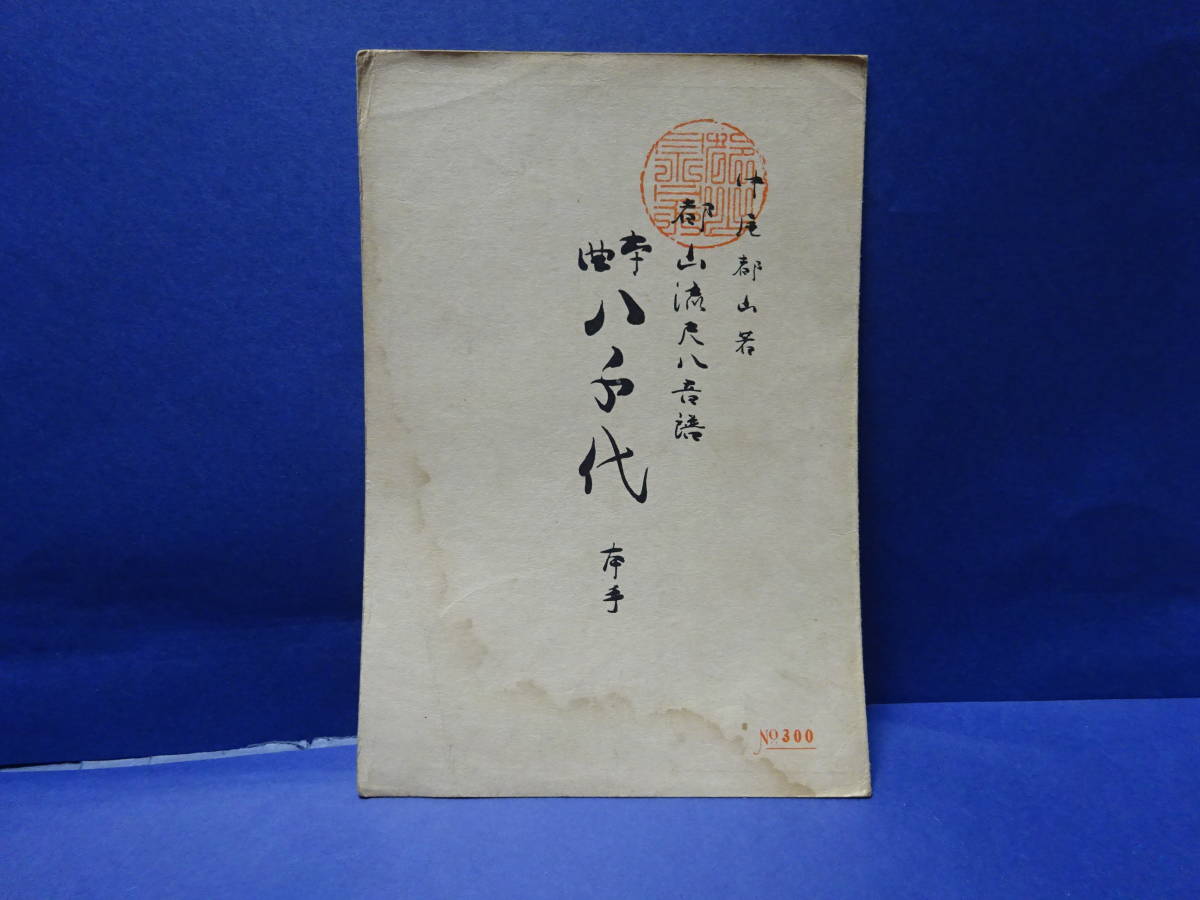 中尾都山著
都山流尺八音譜
本曲 八千代 本手
No 300